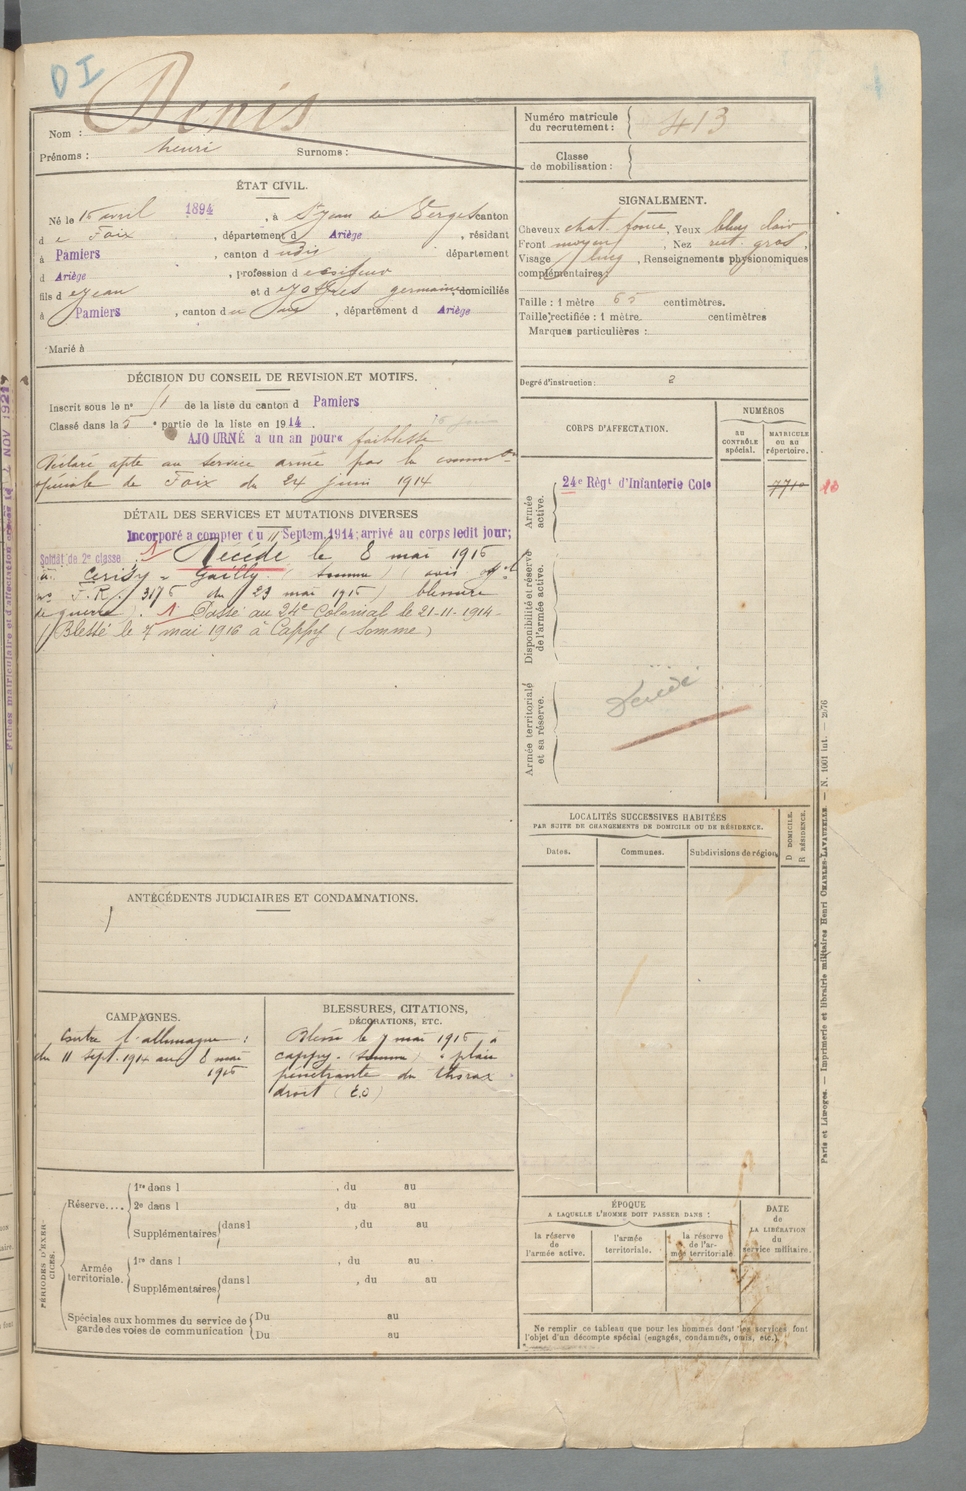 DI
Denis
Nom :
Prénoms : henri Surnoms :
Numéro matricule
du recrutement : 413
Classe
de mobilisation :
ÉTAT CIVIL.
Né le 15 avril 1894, à St Jean de Verges canton
d e Foix, département d Ariège, résidant
à Pamiers, canton d udis département
d Ariège, profession d
fils d e Jean et d e germaine, domiciliés
à Pamiers, canton d u dis, département d Ariège
Marié à
SIGNALEMENT.
Cheveux chat. foncé, Yeux bleu clair
Front moyen, Nez rect. gros,
Visage long, Renseignements physionomiques
complémentaires :
Taille : 1 mètre 65 centimètres.
Taille rectifiée : 1 mètre. centimètres
Marques particulières :
Degré d'instruction : 2
DÉCISION DU CONSEIL DE REVISION ET MOTIFS.
Inscrit sous le no 51 de la liste du canton d Pamiers
Classé dans la 5e partie de la liste en 1914
AJOURNÉ a un an pour « faiblesse
Déclaré apte au service armé par la common
spéciale de Foix du 24 juin 1914
DÉTAIL DES SERVICES ET MUTATIONS DIVERSES
Incorporé a compter du 11 Septem. 1914; arrivé au corps ledit jour;
Soldat de 2e classe. 1 Décédé le 8 mai 1916
à Cerisy - Gailly. (somme) (avis off el
no F.R. 3176 du 23 mai 1916) blessure
de guerre). 1 Passé au 24e Colonial le 21-11-1914-
Blessé le 7 mai 1916 à Cappy (Somme)
CORPS D'AFFECTATION.
NUMÉROS
au
CONTRÔLE
spécial.
MATRICULE
ou au
répertoire.
Armée
active.
24e Régt d'Infanterie Cole
Disponibilité et réserve
de l'armée active.
Armée territoriale
et sa réserve.
Décédé
LOCALITÉS SUCCESSIVES HABITÉES
PAR SUITE DE CHANGEMENTS DE DOMICILE OU DE RÉSIDENCE.
Dates. Communes. Subdivisions de région
D DOMICILE.
R RÉSIDENCE.
ANTÉCÉDENTS JUDICIAIRES ET CONDAMNATIONS.
CAMPAGNES.
Contre l'allemagne :
du 11 sept. 1914 au 8 mai
1916
BLESSURES, CITATIONS,
DÉCORATIONS, ETC.
Blessé le 7 mai 1916 à
cappy. (somme) "plaie
pénétrante du thorax
droit (E.O)
PÉRIODES D'EXER-
CICES.
Réserve....
1re dans l , du au
2e dans l , du au
Supplémentaires dans l , du au
Armée
territoriale.
1re dans l , du au
Supplémentaires dans l , du au
Spéciales aux hommes du service de
garde des voies de communication
Du au
Du au
ÉPOQUE
A LAQUELLE L'HOMME DOIT PASSER DANS :
la réserve
de
l'armée active.
l'armée
territoriale.
la réserve
de l'ar-
mée territoriale
DATE
de
LA LIBÉRATION
du
service militaire.
Ne remplir ce tableau que pour les hommes dont les services font
l'objet d'un décompte spécial (engagés, condamnés, omis, etc.).
Paris et Limoges. — Imprimerie et librairie militaires Henri CHARLES-LAVAUZELLE. — N. 1001 int. — 2/76